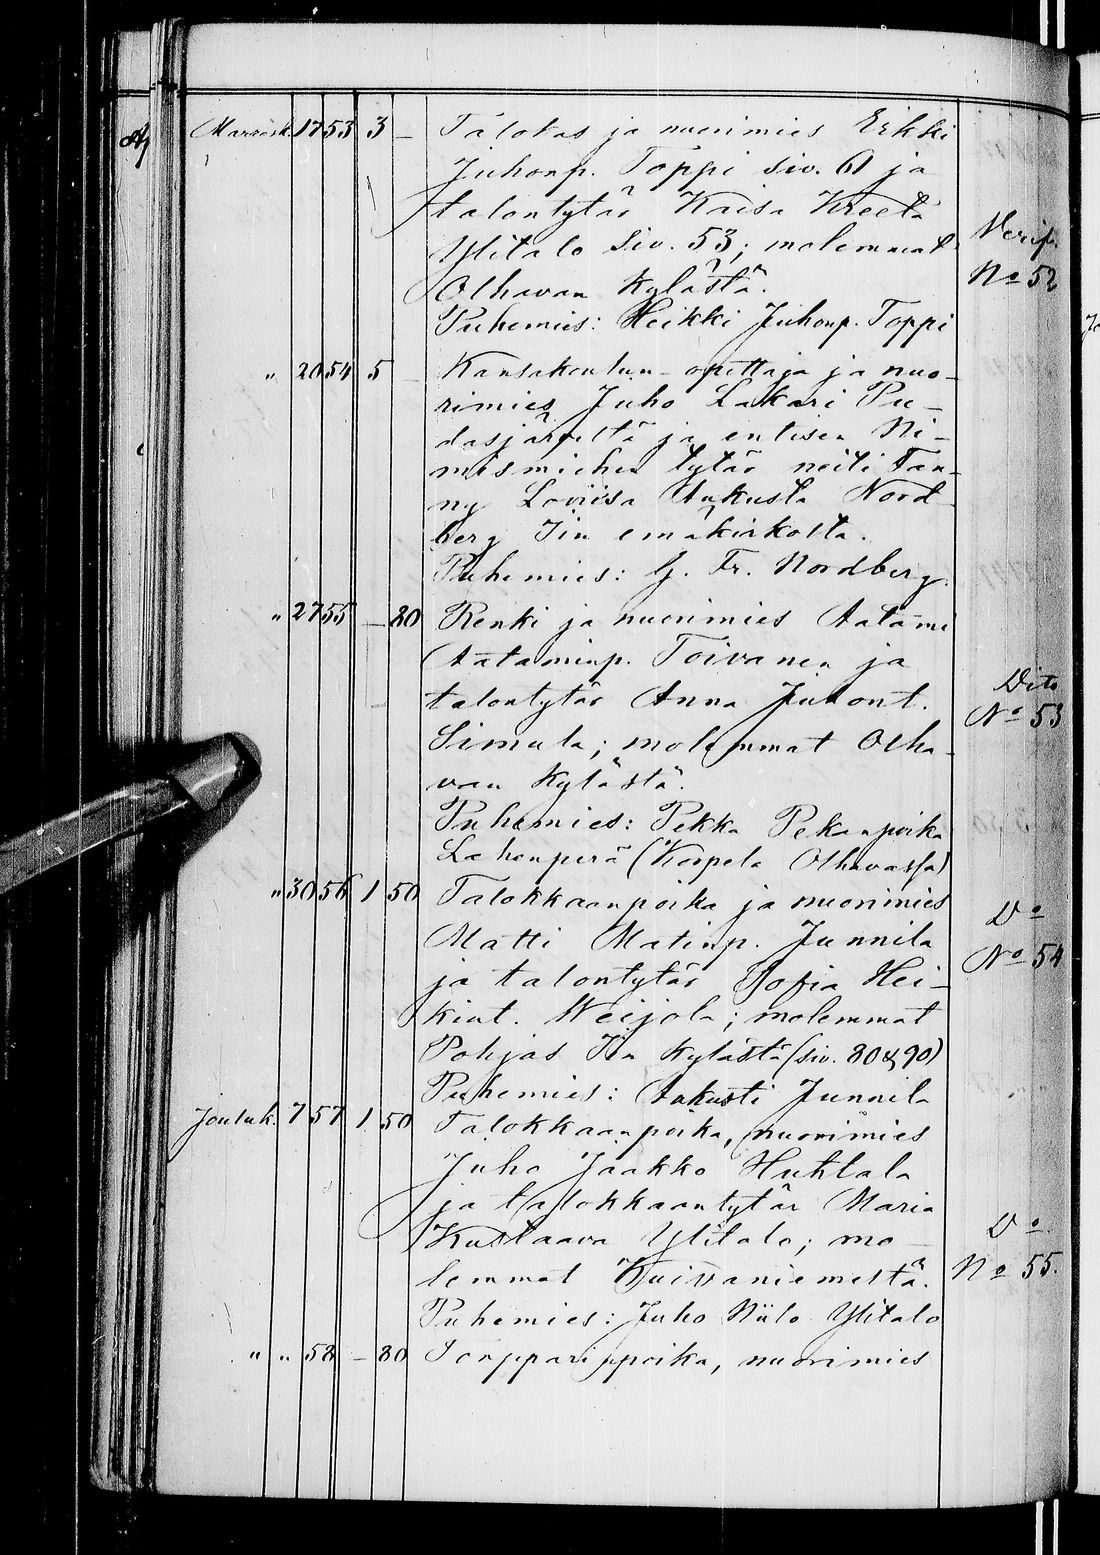 Marrask. 17 53 3 — Talokas ja nuorimies Erkki
Juhonp. Toppi siv. 61 ja
talontytär Kaisa Kreeta
Ylitalo siv. 53; molemmat
Olhavan kylästä.
Verif. No 52
Puhemies: Heikki Juhonp. Toppi
" 20 54 5 — Kansakoulun-opettaja ja nuo-
rimies Juho Lakari Pu-
dasjärveltä ja entisen Ni-
mismiehen tytär neiti Fan-
ny Loviisa Aukusta Nord-
berg Iin emäkirkolta.
Puhemies: G. Fr. Nordberg.
" 27 55 — 80 Renki ja nuorimies Aatami
Aataminp. Toivanen ja
talontytär Anna Juhont.
Dito No 53
Simula; molemmat Olha-
van kylästä.
Puhemies: Pekka Pekanpoika
Lahenperä (Korpela Olhavassa)
" 30 56 1 50 Talokkaanpoika ja nuorimies
Matti Matinp. Junnila
Do No 54
ja talontytär Sofia Hei-
kint. Weijola; molemmat
Pohjas Iin kylästä (siv. 80 & 90)
Puhemies: Aukusti Junnila
Jouluk. 7 57 1 50 Talokkaanpoika, nuorimies
Juho Jaakko Huhtala
ja talokkaantytär Maria
Kustaava Ylitalo; mo-
lemmat Kuivaniemeltä.
Do No 55.
Puhemies: Juho Niilo Ylitalo
" " 58 — 80 Torpparinpoika, nuorimies